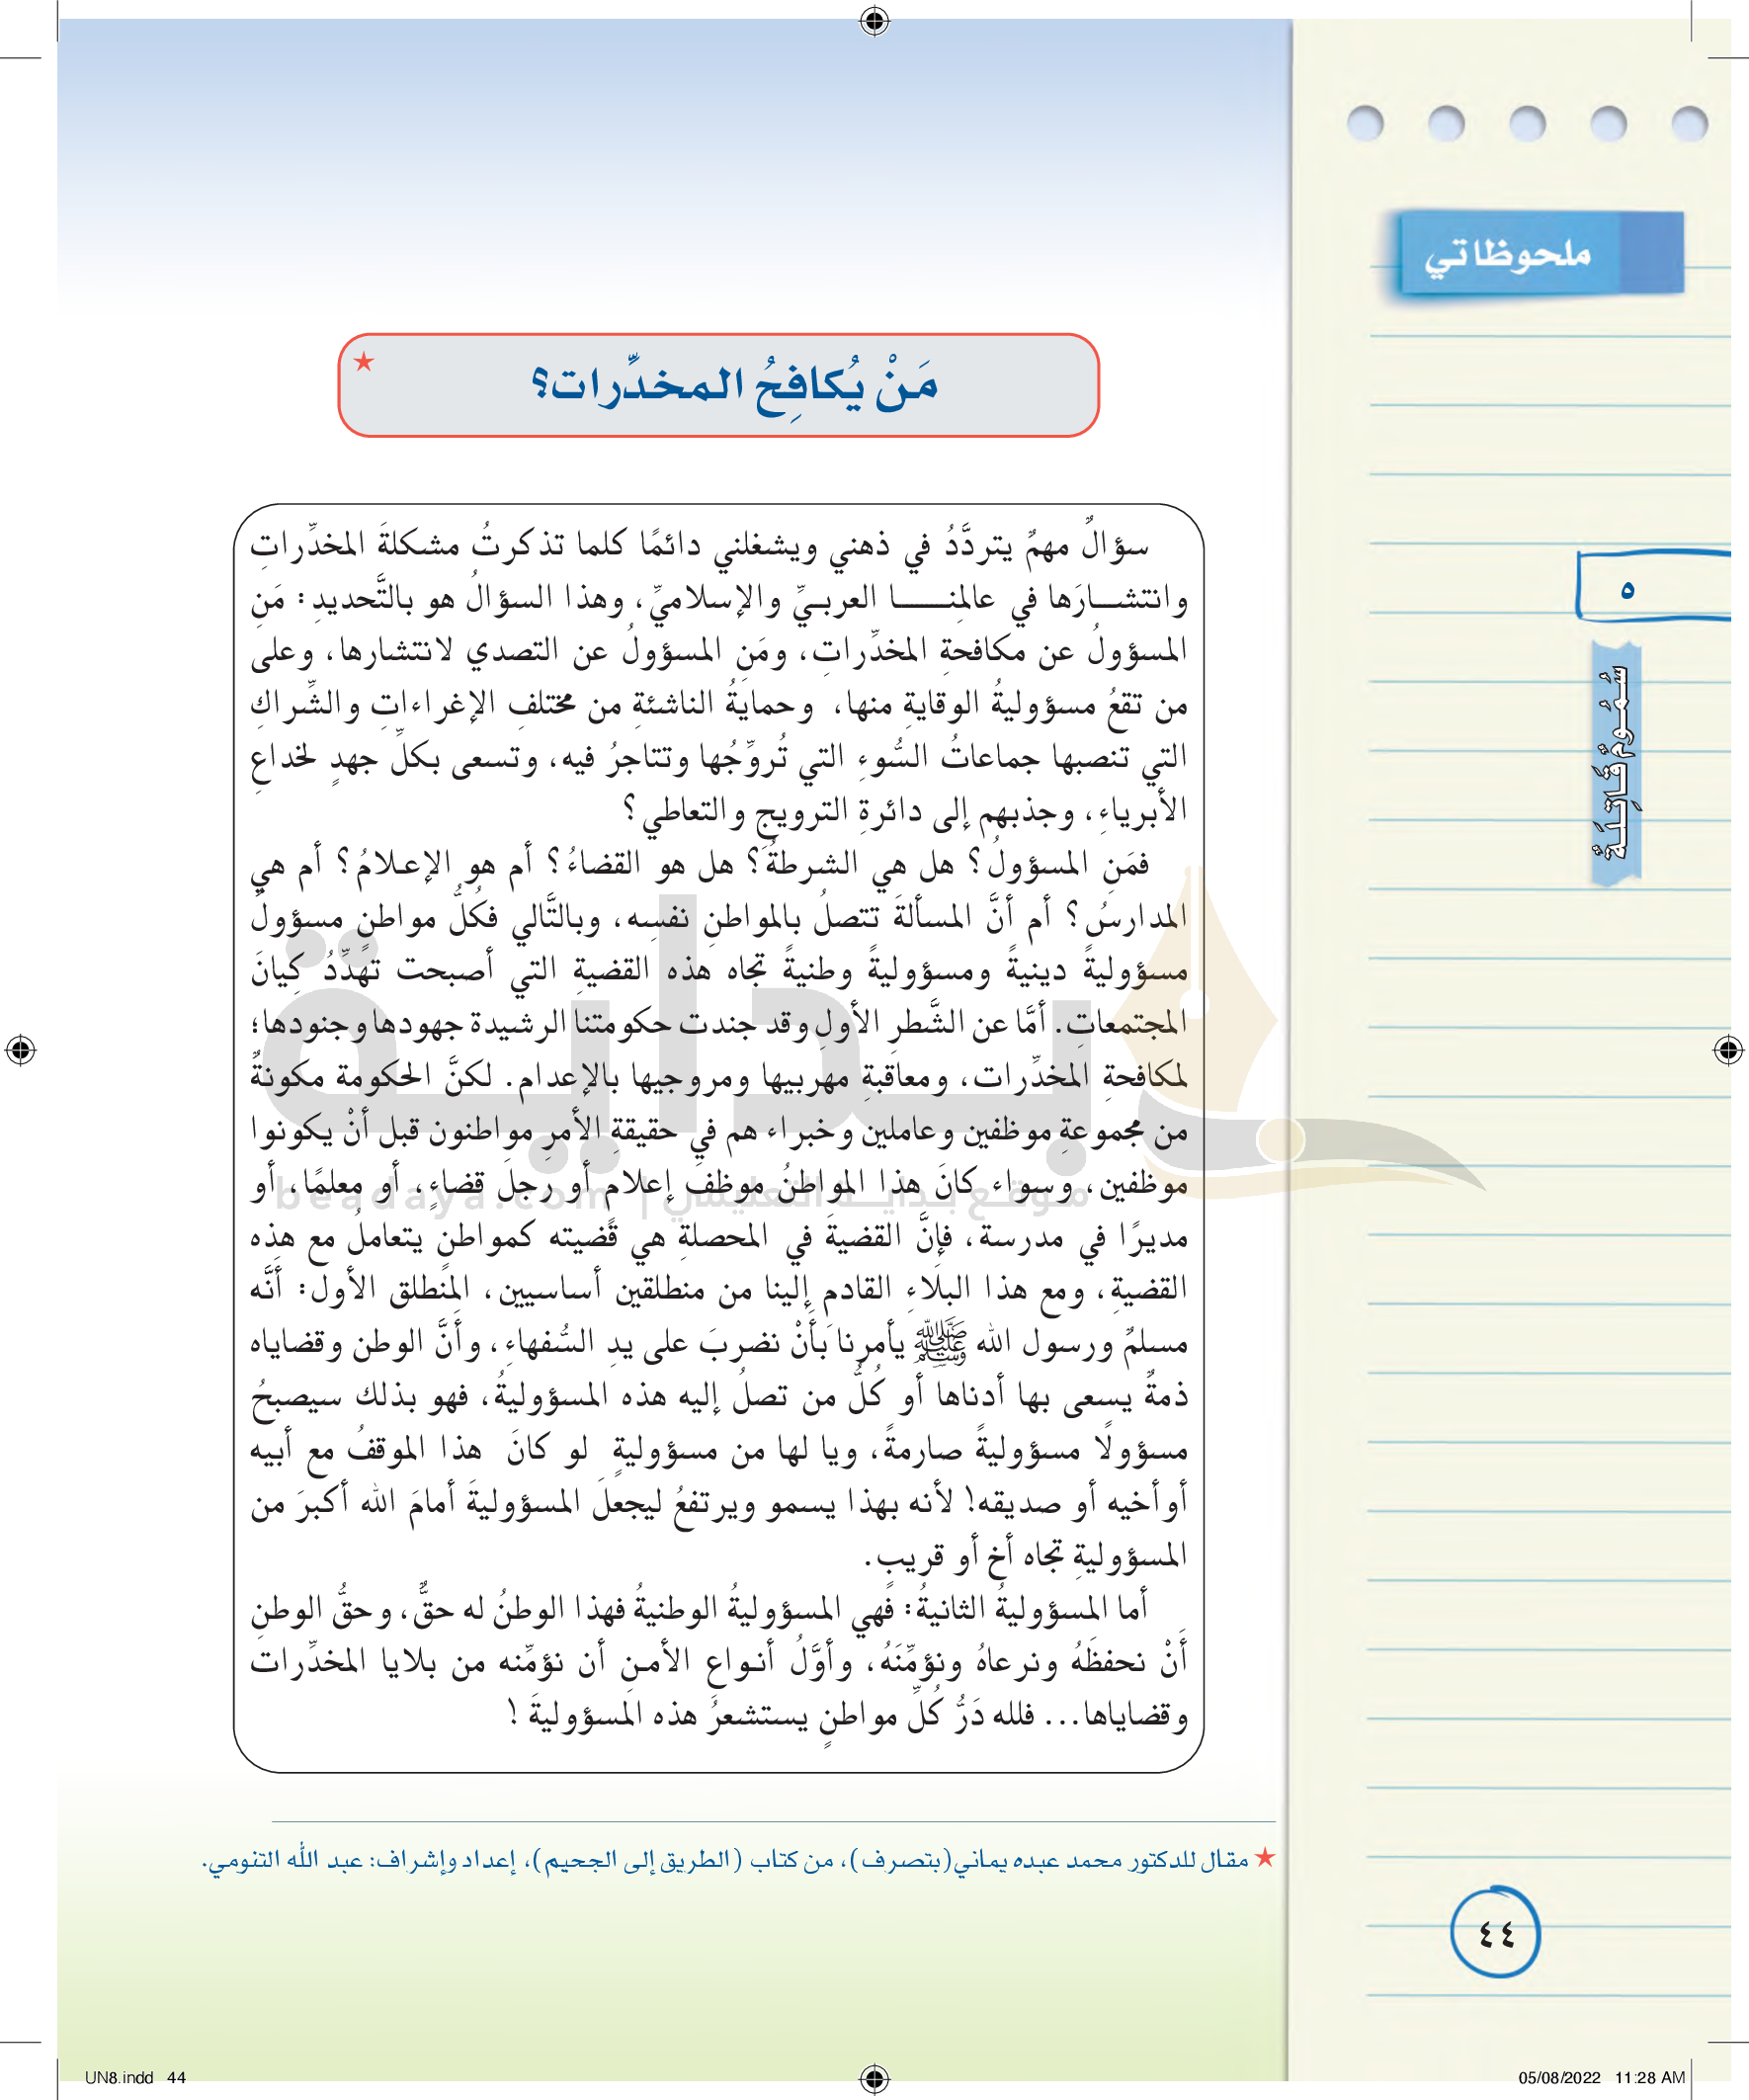 ملحوظاتي
٥
سُمُومٌ قَاتِلَةٌ
مَنْ يُكافِحُ المخدِّرات؟ ★
سؤالٌ مهمٌ يتردَّدُ في ذهني ويشغلني دائمًا كلما تذكرتُ مشكلةَ المخدِّراتِ
وانتشـــارَها في عالمِنـــــــا العربـيِّ والإسلاميِّ، وهذا السؤالُ هو بالتَّحديدِ: مَنِ
المسؤولُ عن مكافحةِ المخدِّراتِ، ومَنِ المسؤولُ عن التصدي لانتشارها، وعلى
من تقعُ مسؤوليةُ الوقايةِ منها، وحمايةُ الناشئةِ من مختلفِ الإغراءاتِ والشِّراكِ
التي تنصبها جماعاتُ السُّوءِ التي تُروِّجُها وتتاجرُ فيه، وتسعى بكلِّ جهدٍ لخداعِ
الأبرياءِ، وجذبهم إلى دائرةِ الترويجِ والتعاطي؟
فمَنِ المسؤولُ؟ هل هي الشرطةُ؟ هل هو القضاءُ؟ أم هو الإعلامُ؟ أم هي
المدارسُ؟ أم أنَّ المسألةَ تتصلُ بالمواطنِ نفسِه، وبالتَّالي فكُلُّ مواطنٍ مسؤولٌ
مسؤوليةً دينيةً ومسؤوليةً وطنيةً تجاه هذه القضيةِ التي أصبحت تهدِّدُ كِيانَ
المجتمعاتِ. أمَّا عن الشَّطرِ الأولِ وقد جندت حكومتنا الرشيدة جهودها وجنودها؛
لمكافحةِ المخدِّرات، ومعاقبةِ مهربيها ومروجيها بالإعدام. لكنَّ الحكومة مكونةٌ
من مجموعةِ موظفين وعاملين وخبراء هم في حقيقةِ الأمرِ مواطنون قبل أنْ يكونوا
موظفين، وسواء كانَ هذا المواطنُ موظفَ إعلامٍ أو رجلَ قضاءٍ، أو معلمًا، أو
مديرًا في مدرسة، فإنَّ القضيةَ في المحصلةِ هي قضيته كمواطنٍ يتعاملُ مع هذِه
القضيةِ، ومع هذا البلاءِ القادمِ إلينا من منطلقين أساسيين، المنطلق الأول: أنَّه
مسلمٌ ورسول الله ﷺ يأمرنا بأنْ نضربَ على يدِ السُّفهاءِ، وأنَّ الوطن وقضاياه
ذمةٌ يسعى بها أدناها أو كُلُّ من تصلُ إليه هذه المسؤوليةُ، فهو بذلك سيصبحُ
مسؤولًا مسؤوليةً صارمةً، ويا لها من مسؤوليةٍ لو كانَ هذا الموقفُ مع أبيه
أوأخيه أو صديقه! لأنه بهذا يسمو ويرتفعُ ليجعلَ المسؤوليةَ أمامَ الله أكبرَ من
المسؤوليةِ تجاه أخ أو قريبٍ.
أما المسؤوليةُ الثانيةُ: فهي المسؤوليةُ الوطنيةُ فهذا الوطنُ له حقٌّ، وحقُّ الوطنِ
أنْ نحفظَهُ ونرعاهُ ونؤمِّنَهُ، وأوَّلُ أنـواعِ الأمـنِ أن نؤمِّنه من بلايا المخدِّرات
وقضاياها... فلله دَرُّ كُلِّ مواطنٍ يستشعرُ هذه المسؤوليةَ !
بداية
موقع بداية التعليمي | beadaya.com
★ مقال للدكتور محمد عبده يماني(بتصرف)، من كتاب (الطريق إلى الجحيم)، إعداد وإشراف: عبد الله التنومي.
٤٤
UN8.indd 44
05/08/2022 11:28 AM